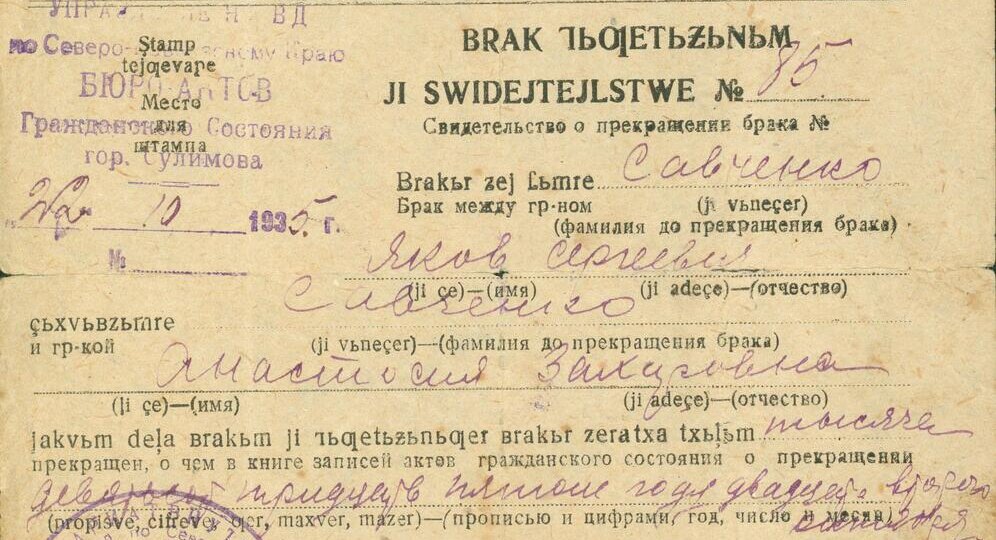 УПРАВЛЕНИЕ НКВД
по Северо-Кавказскому Краю
БЮРО АКТОВ
Гражданского Состояния
гор. Сулимова
Ştamp
tejqevape
Место
для
штампа
22 10 1935 г.
№
BRAK
JI SWIDEJTEJLSTWE № 85
Свидетельство о прекращении брака №
Brakьr zej Савченко
Брак между гр-ном (ji vьneçer)
(фамилия до прекращения брака)
Яков Сергеевич
(ji çe)—(имя) (ji adeçe)—(отчество)
Савченко
çьxvьbzьmre
и гр-кой (ji vьneçer)—(фамилия до прекращения брака)
Анастосия Захаровна
(ji çe)—(имя) (ji adeçe)—(отчество)
jakvьm deļa brakьm ji brakьr zeratxa txьļьm тысяча
прекращен, о чем в книге записей актов гражданского состояния о прекращении
девятьсот тридцать пятого года двадцать второго
(propisve, cifreve, maxver, mazer)—(прописью и цифрами, год, число и месяц)
октября